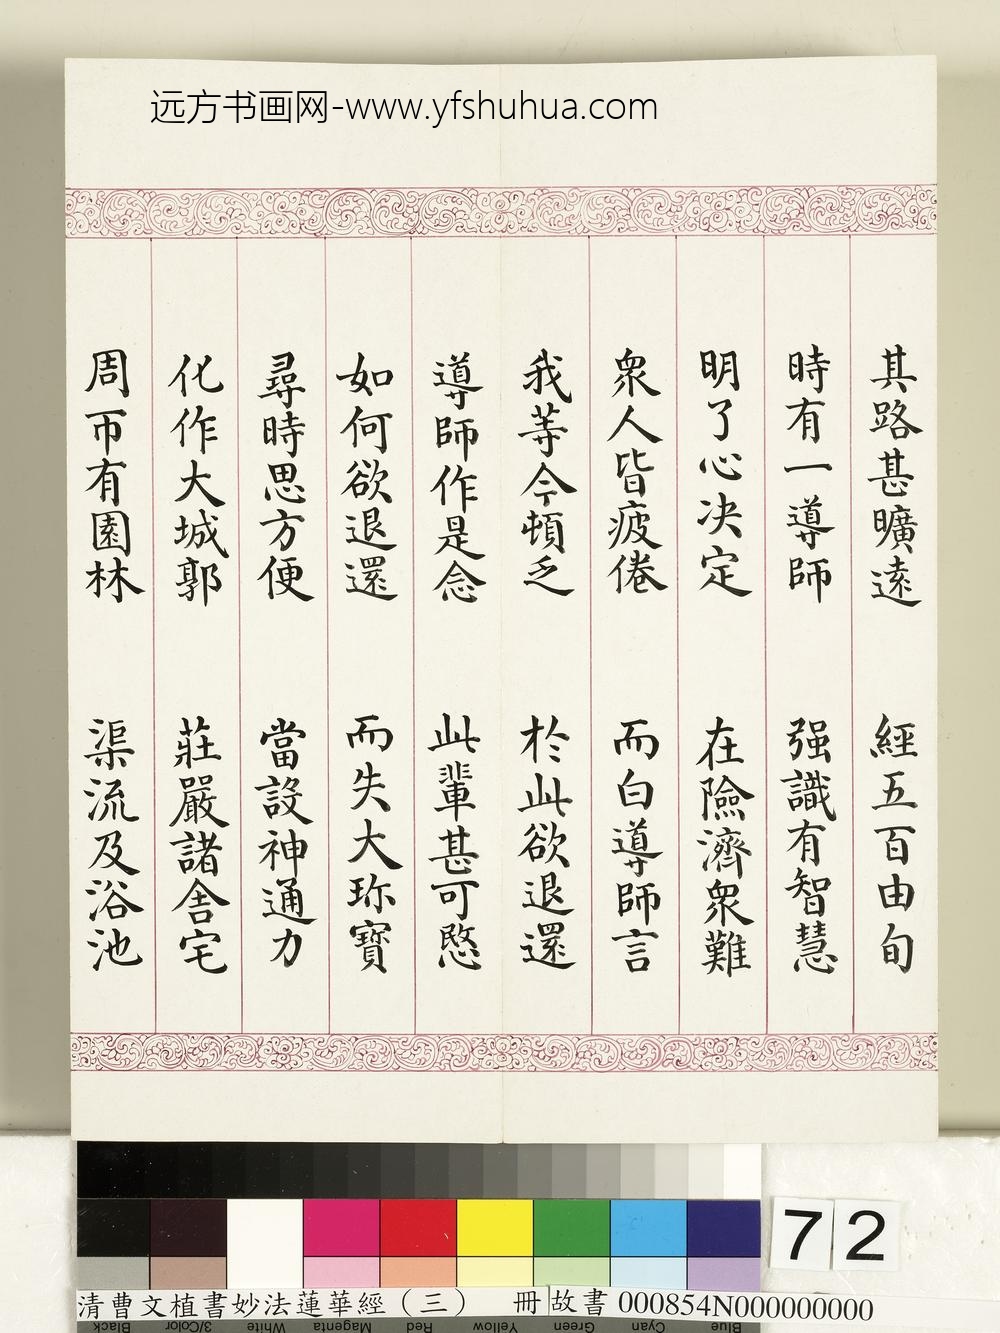 远方书画网-www.yfshuhua.com
其路甚曠遠 經五百由旬
時有一導師 强識有智慧
明了心决定 在險濟衆難
衆人皆疲倦 而白導師言
我等今頓乏 於此欲退還
導師作是念 此輩甚可愍
如何欲退還 而失大珎寶
尋時思方便 當設神通力
化作大城郭 莊嚴諸舍宅
周帀有園林 渠流及浴池
72
清曹文植書妙法蓮華經(三) 冊 故書 000854N000000000
Black 3/Color White Magenta Red Yellow Green Cyan Blue